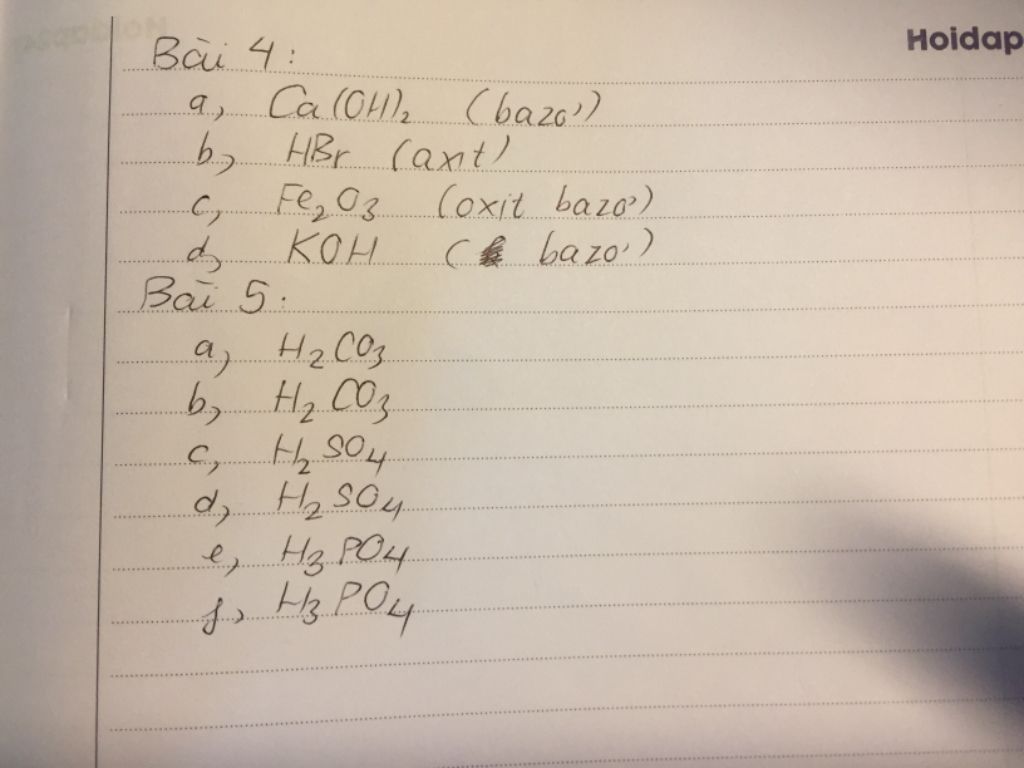 Hoidap
Bài 4:
a, Ca(OH)₂ (bazơ)
b, HBr (axit)
c, Fe₂O₃ (oxit bazơ)
d, KOH ( bazơ)
Bài 5:
a, H₂CO₃
b, H₂CO₃
c, H₂SO₄
d, H₂SO₄
e, H₃PO₄
f, H₃PO₄